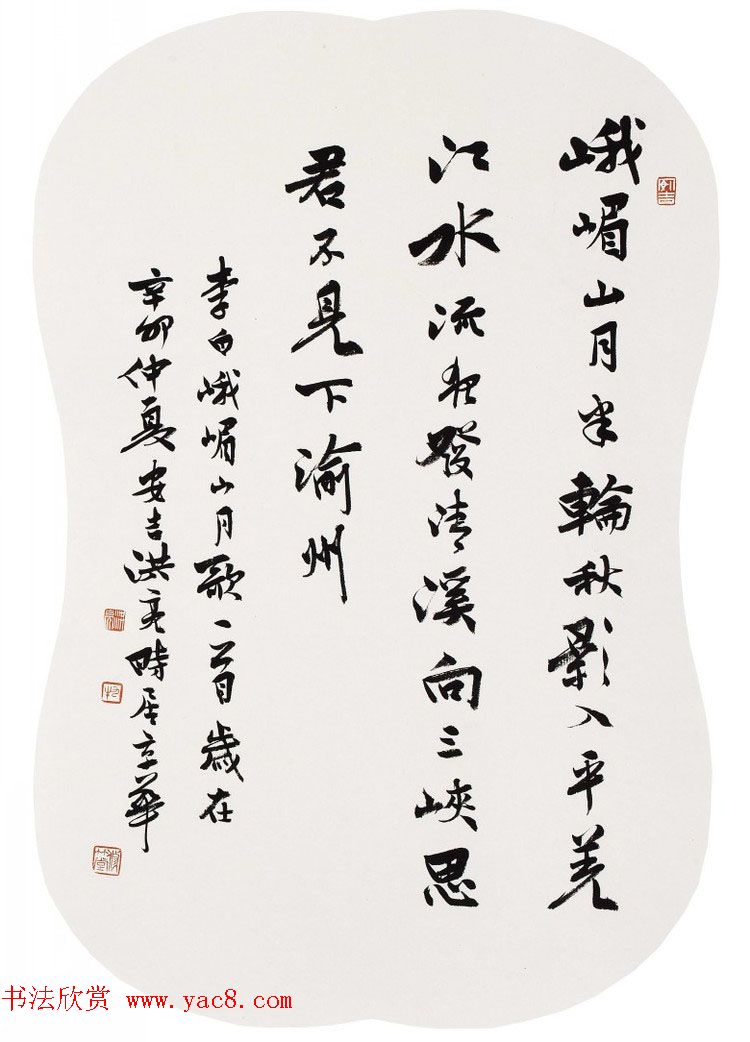 峨嵋山月半輪秋影入平羌
江水流夜發清溪向三峽思
君不見下渝州
李白峨嵋山月歌一首歲在
辛卯仲夏安吉洪亮時居京華
书法欣赏 www.yac8.com